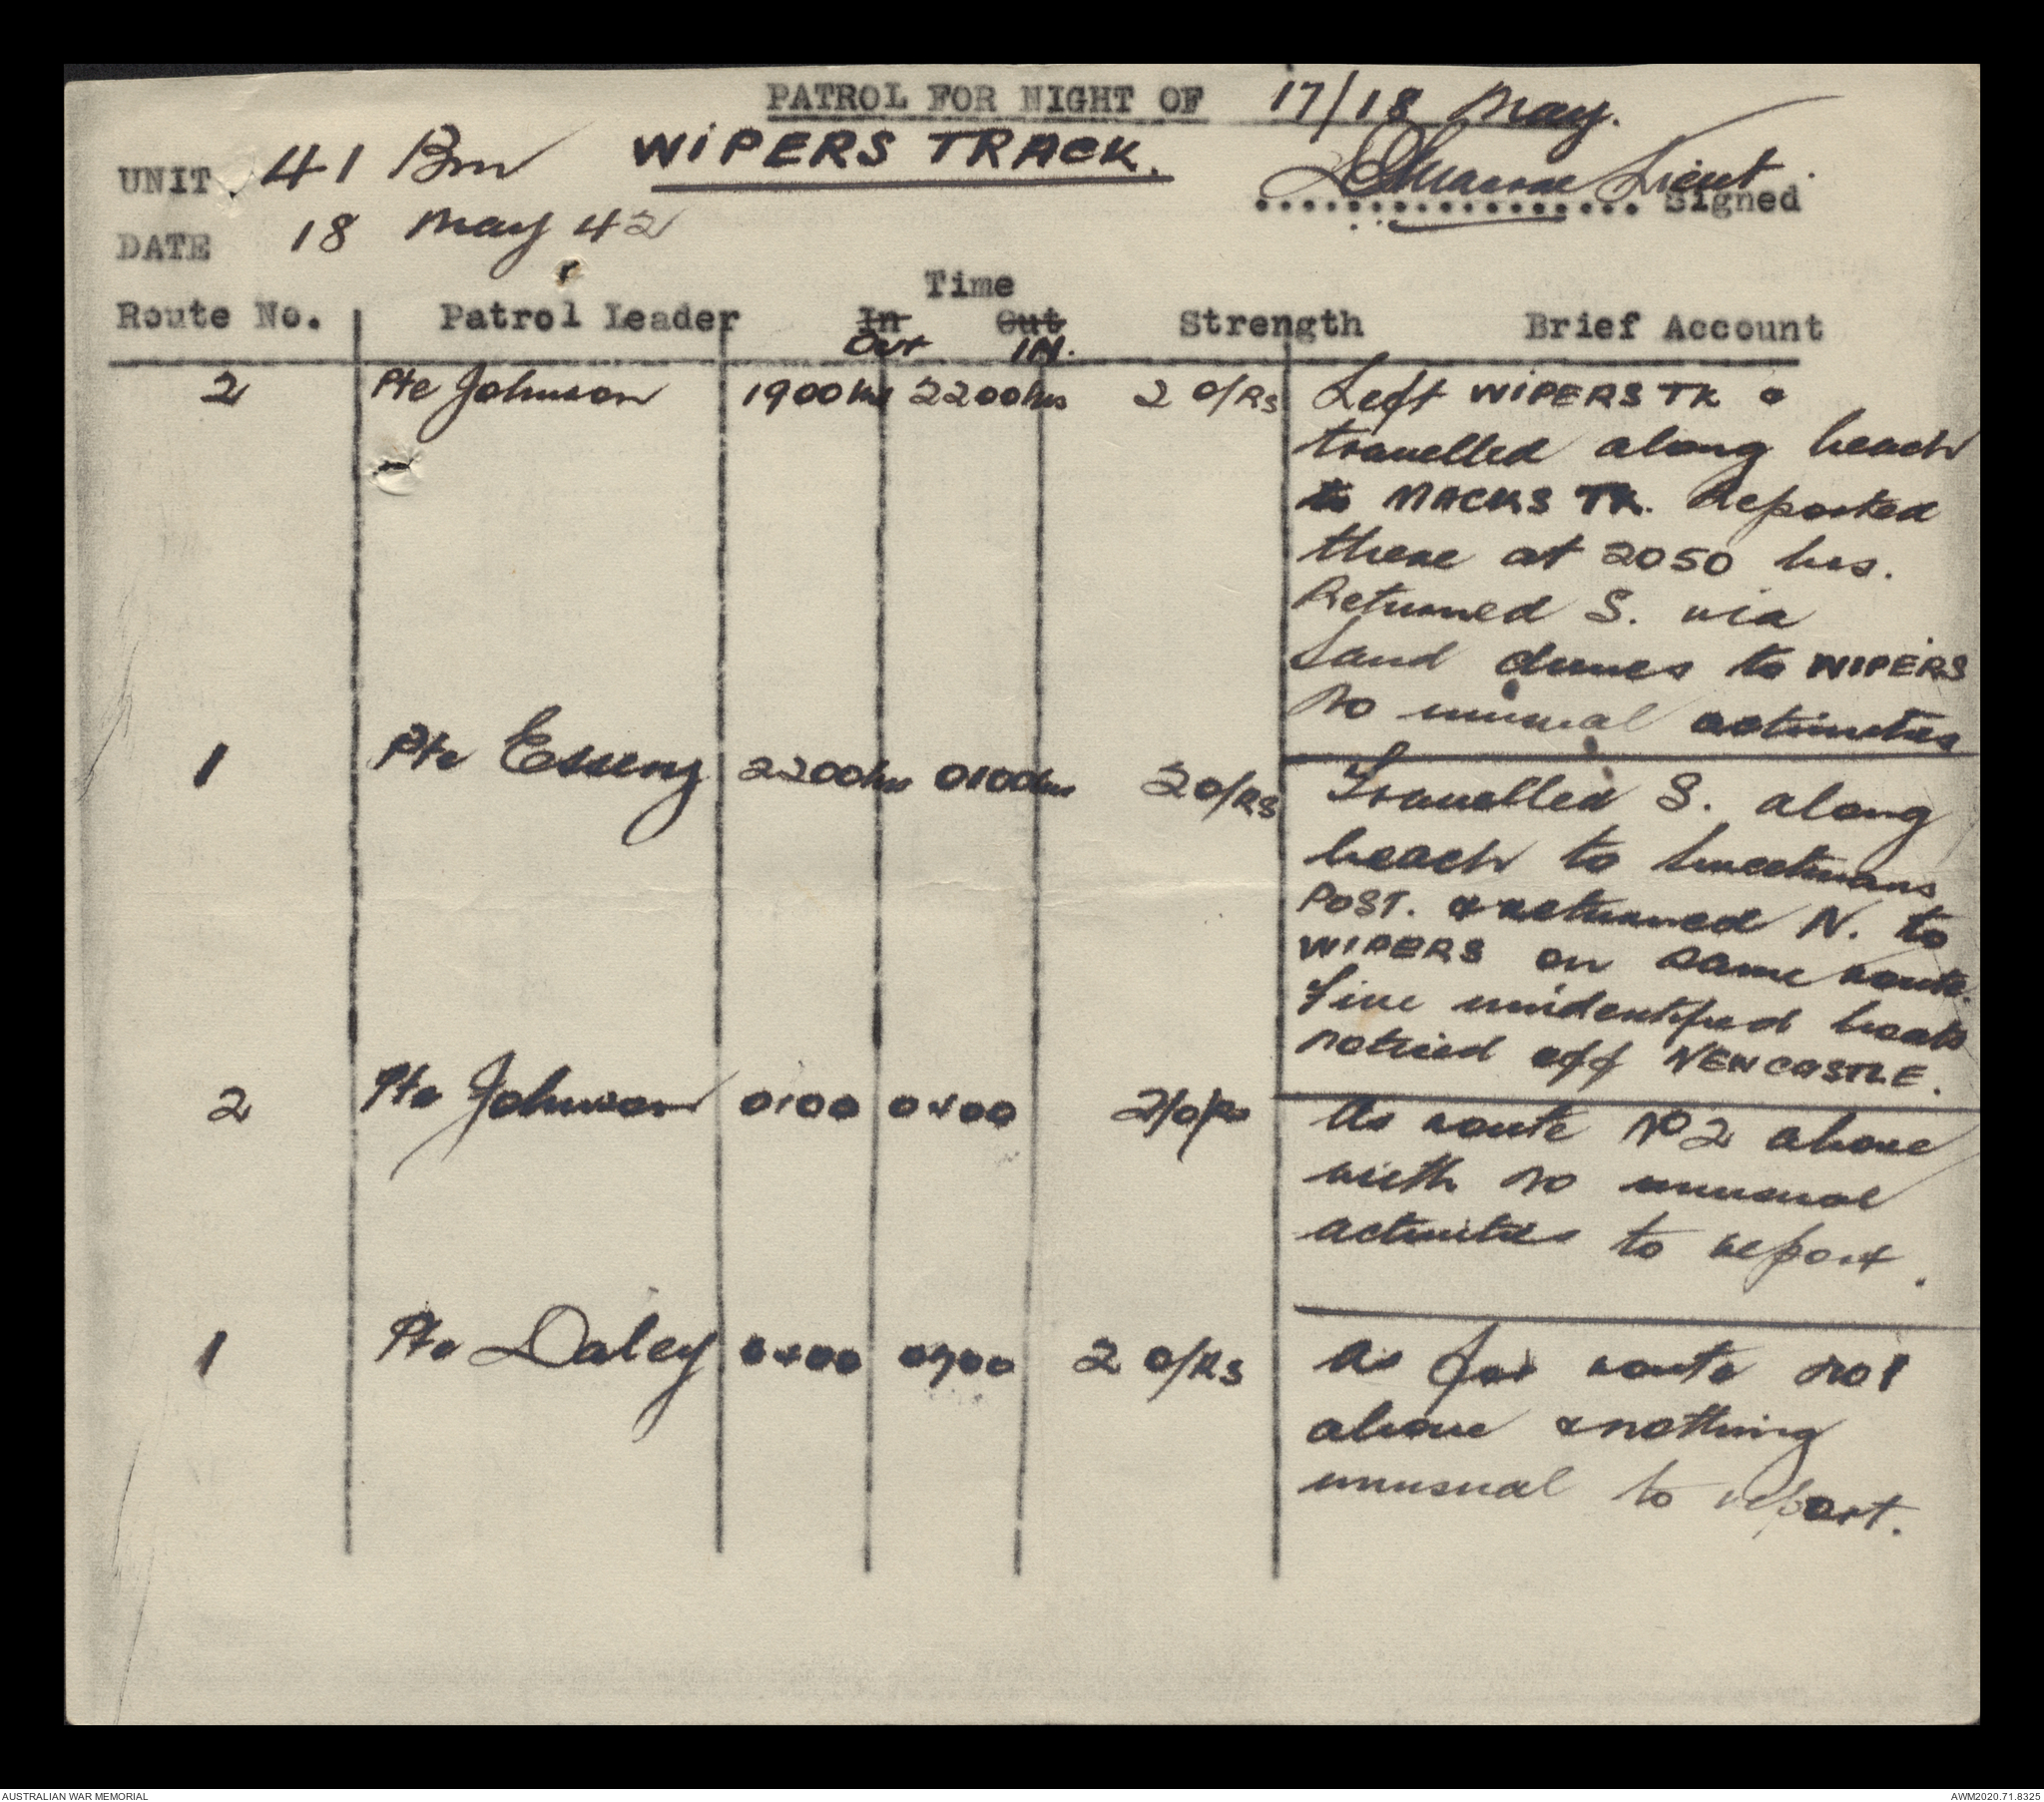 PATROL FOR NIGHT OF 17/18 May.
WIPERS TRACK.
UNIT 41 Bn
Lieut
Signed
DATE 18 May 42
Time
Route No. Patrol Leader In Out Strength Brief Account
Out IN.
2 Pte Johnson 1900hrs 2200hrs 2 O/Rs Left WIPERS TK &
travelled along beach
to MACKS TK. Reported
there at 2050 hrs.
Returned S. via
Sand dunes to WIPERS
No unusual activities
1 Pte 2200hrs 0100hrs 2 O/Rs Travelled S. along
beach to
POST. & returned N. to
WIPERS on same route.
Five unidentified boats
noticed off NEWCASTLE.
2 Pte Johnson 0100 0400 2/O/Rs As route No 2 above
with no unusual
activities to report.
1 Pte Daley 0400 0700 2 O/Rs As for route No 1
above & nothing
unusual to report.
AUSTRALIAN WAR MEMORIAL AWM2020.71.8325